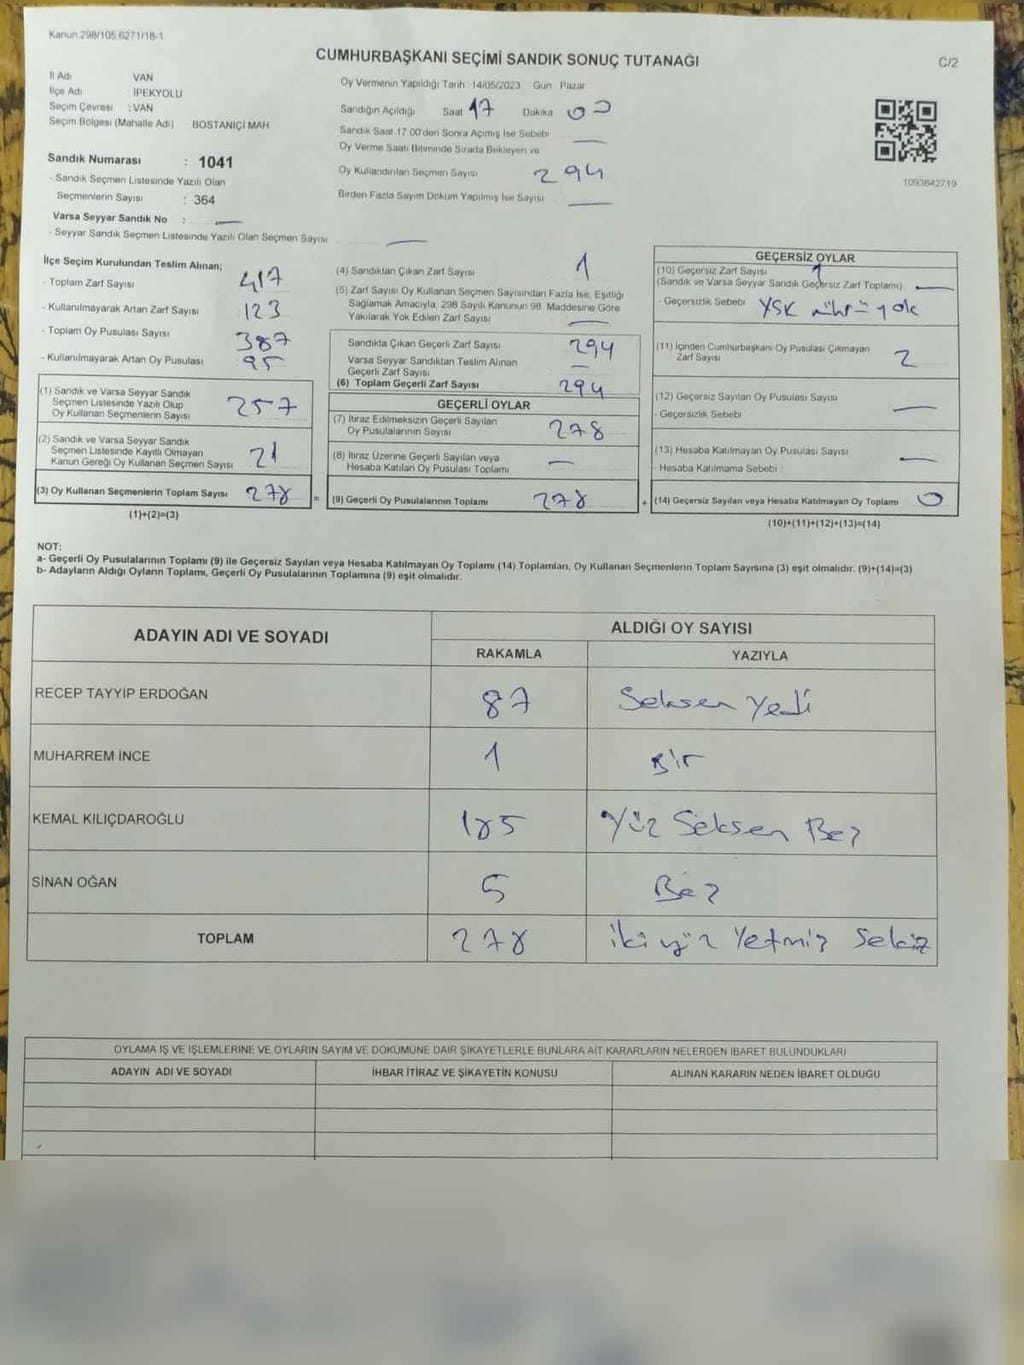 Kanun 298/105,6271/18-1
CUMHURBAŞKANI SEÇİMİ SANDIK SONUÇ TUTANAĞI
C/2
İl Adı VAN
İlçe Adı İPEKYOLU
Seçim Çevresi : VAN
Seçim Bölgesi (Mahalle Adı) BOSTANİÇİ MAH.
Sandık Numarası : 1041
- Sandık Seçmen Listesinde Yazılı Olan
Seçmenlerin Sayısı : 364
Varsa Seyyar Sandık No : —
- Seyyar Sandık Seçmen Listesinde Yazılı Olan Seçmen Sayısı —
Oy Vermenin Yapıldığı Tarih 14/05/2023 Gün Pazar
Sandığın Açıldığı Saat 17 Dakika 00
Sandık Saat 17.00'den Sonra Açılmış İse Sebebi —
Oy Verme Saati Bitiminde Sırada Bekleyen ve
Oy Kullandırılan Seçmen Sayısı 294
Birden Fazla Sayım Döküm Yapılmış İse Sayısı —
1093642719
İlçe Seçim Kurulundan Teslim Alınan;
- Toplam Zarf Sayısı 417
- Kullanılmayarak Artan Zarf Sayısı 123
- Toplam Oy Pusulası Sayısı 387
- Kullanılmayarak Artan Oy Pusulası 95
(1) Sandık ve Varsa Seyyar Sandık
Seçmen Listesinde Yazılı Olup
Oy Kullanan Seçmenlerin Sayısı 257
(2) Sandık ve Varsa Seyyar Sandık
Seçmen Listesinde Kayıtlı Olmayan
Kanun Gereği Oy Kullanan Seçmen Sayısı 21
(3) Oy Kullanan Seçmenlerin Toplam Sayısı 278 =
(1)+(2)=(3)
(4) Sandıktan Çıkan Zarf Sayısı 1
(5) Zarf Sayısı Oy Kullanan Seçmen Sayısından Fazla İse, Eşitliği
Sağlamak Amacıyla, 298 Sayılı Kanunun 98. Maddesine Göre
Yakılarak Yok Edilen Zarf Sayısı —
Sandıkta Çıkan Geçerli Zarf Sayısı 294
Varsa Seyyar Sandıktan Teslim Alınan
Geçerli Zarf Sayısı —
(6) Toplam Geçerli Zarf Sayısı 294
GEÇERLİ OYLAR
(7) İtiraz Edilmeksizin Geçerli Sayılan
Oy Pusulalarının Sayısı 278
(8) İtiraz Üzerine Geçerli Sayılan veya
Hesaba Katılan Oy Pusulası Toplamı —
(9) Geçerli Oy Pusulalarının Toplamı 278 +
GEÇERSİZ OYLAR
(10) Geçersiz Zarf Sayısı 1
(Sandık ve Varsa Seyyar Sandık Geçersiz Zarf Toplamı) —
- Geçersizlik Sebebi YSK mührü yok
(11) İçinden Cumhurbaşkanı Oy Pusulası Çıkmayan
Zarf Sayısı 2
(12) Geçersiz Sayılan Oy Pusulası Sayısı —
- Geçersizlik Sebebi
(13) Hesaba Katılmayan Oy Pusulası Sayısı —
- Hesaba Katılmama Sebebi
(14) Geçersiz Sayılan veya Hesaba Katılmayan Oy Toplamı 0
(10)+(11)+(12)+(13)=(14)
NOT:
a- Geçerli Oy Pusulalarının Toplamı (9) ile Geçersiz Sayılan veya Hesaba Katılmayan Oy Toplamı (14) Toplamları, Oy Kullanan Seçmenlerin Toplam Sayısına (3) eşit olmalıdır. (9)+(14)=(3)
b- Adayların Aldığı Oyların Toplamı, Geçerli Oy Pusulalarının Toplamına (9) eşit olmalıdır.
ADAYIN ADI VE SOYADI
ALDIĞI OY SAYISI
RAKAMLA YAZIYLA
RECEP TAYYİP ERDOĞAN 87 Seksen Yedi
MUHARREM İNCE 1 Bir
KEMAL KILIÇDAROĞLU 185 Yüz Seksen Beş
SİNAN OĞAN 5 Beş
TOPLAM 278 iki yüz Yetmiş Sekiz
OYLAMA İŞ VE İŞLEMLERİNE VE OYLARIN SAYIM VE DÖKÜMÜNE DAİR ŞİKAYETLERLE BUNLARA AİT KARARLARIN NELERDEN İBARET BULUNDUKLARI
ADAYIN ADI VE SOYADI İHBAR İTİRAZ VE ŞİKAYETİN KONUSU ALINAN KARARIN NEDEN İBARET OLDUĞU